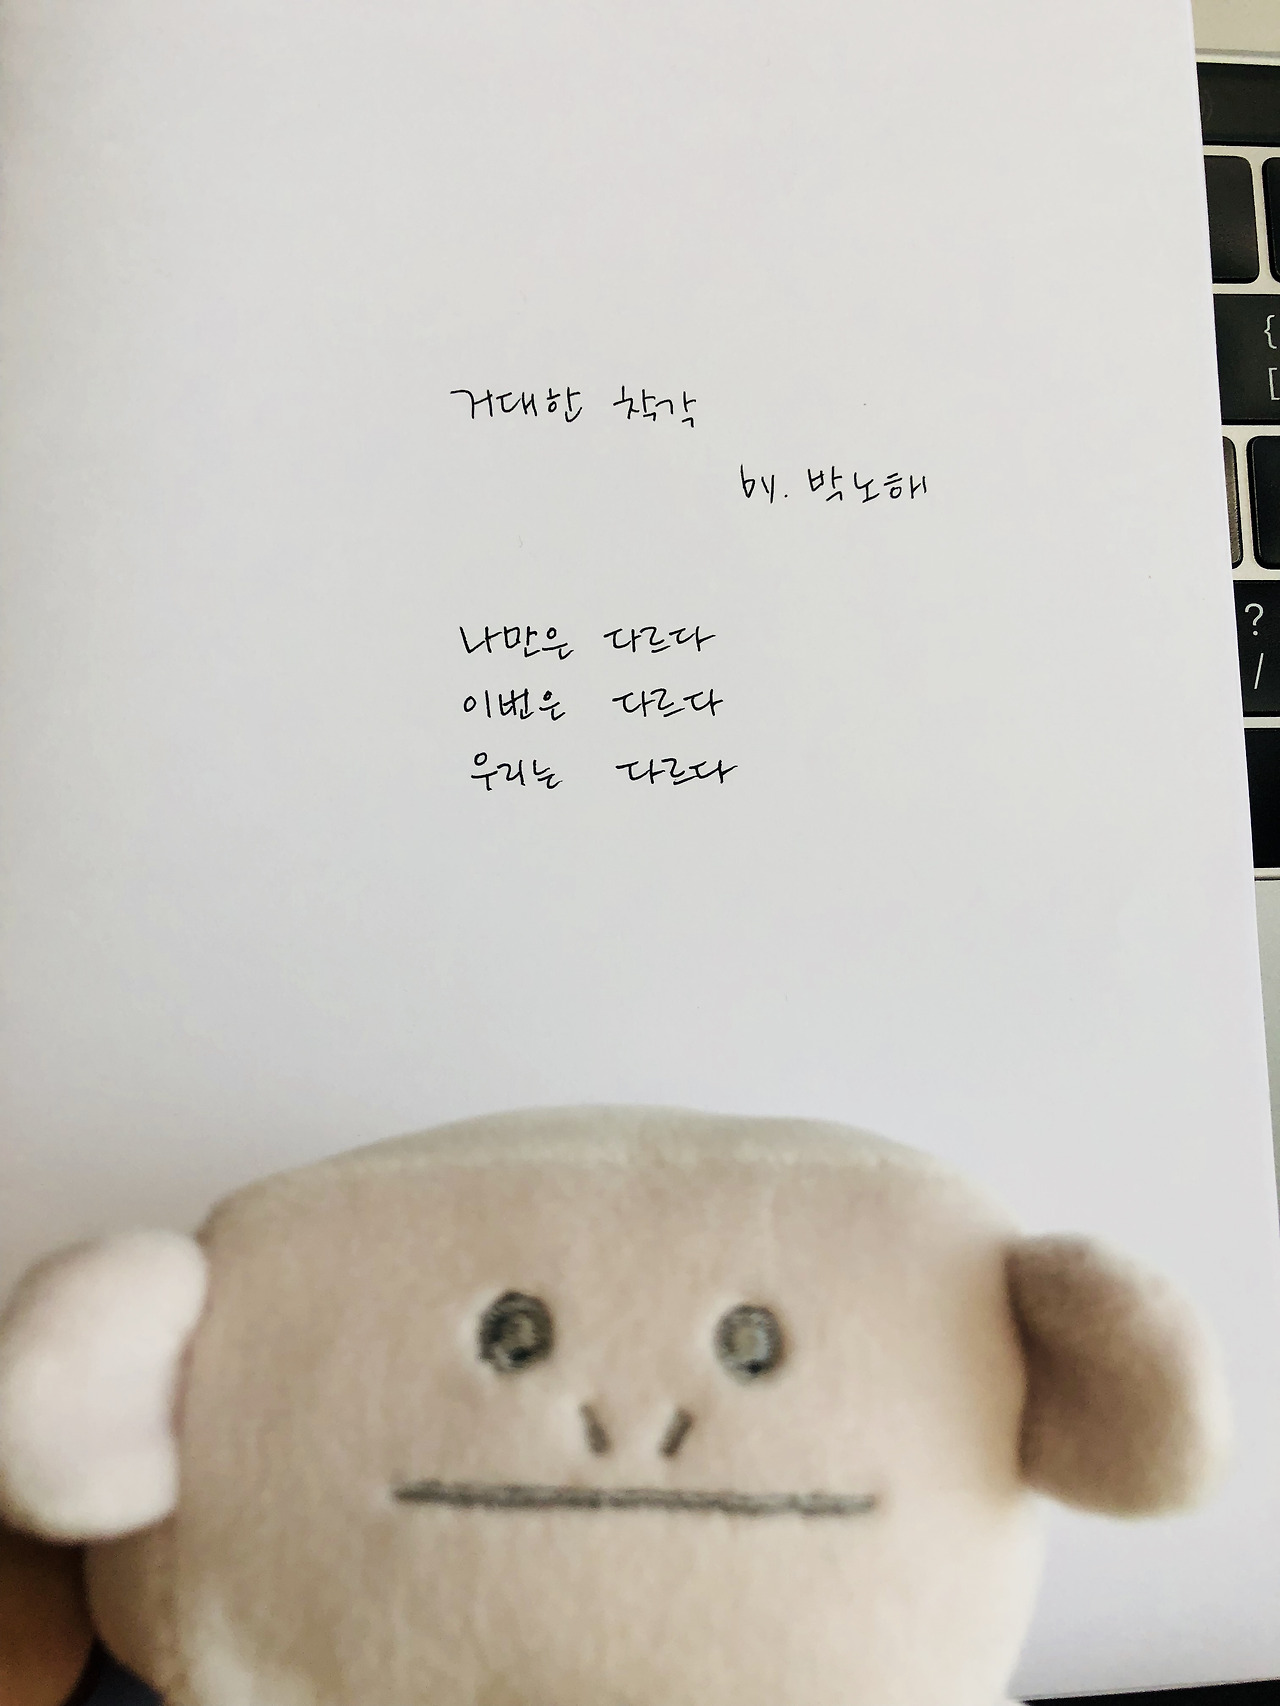 거대한 착각
by. 박노해
나만은 다르다
이번은 다르다
우리는 다르다
{
[
?
/